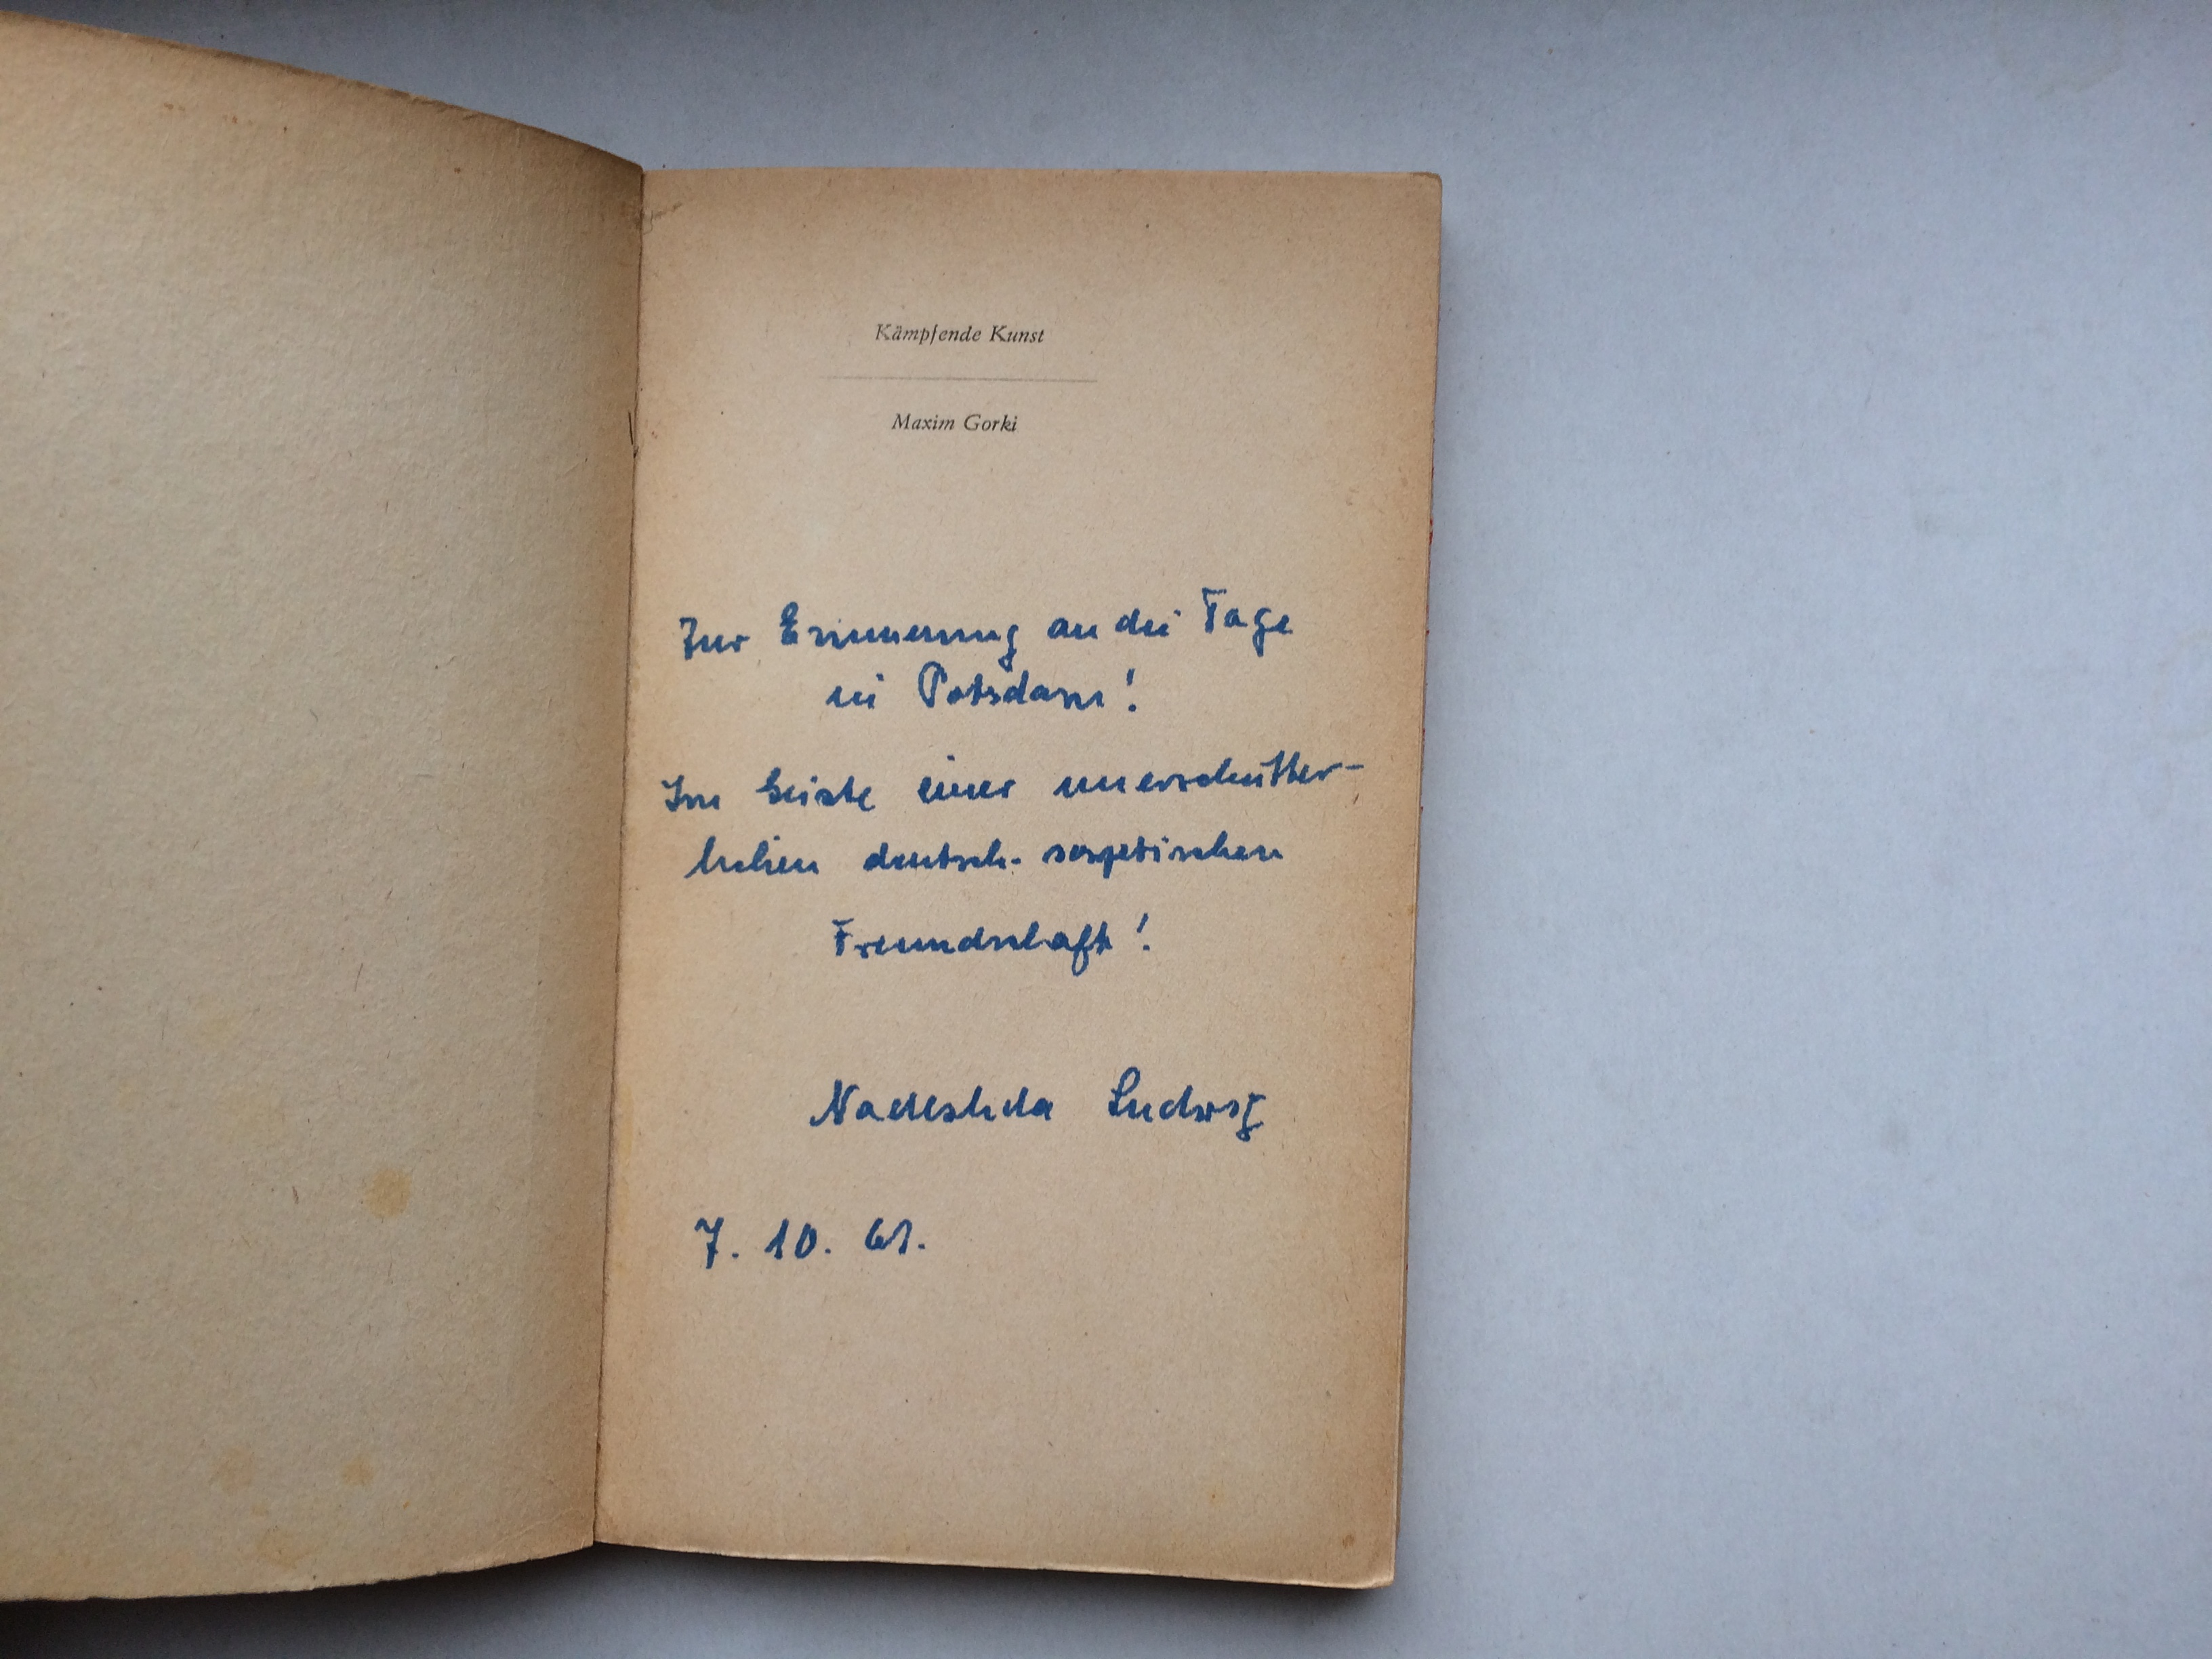 Kämpfende Kunst
Maxim Gorki
Zur Erinnerung an die Tage
in Potsdam!
Im Geiste einer unerschütter-
lichen deutsch-sowjetischen
Freundschaft!
Nadeshda Ludwig
7. 10. 61.